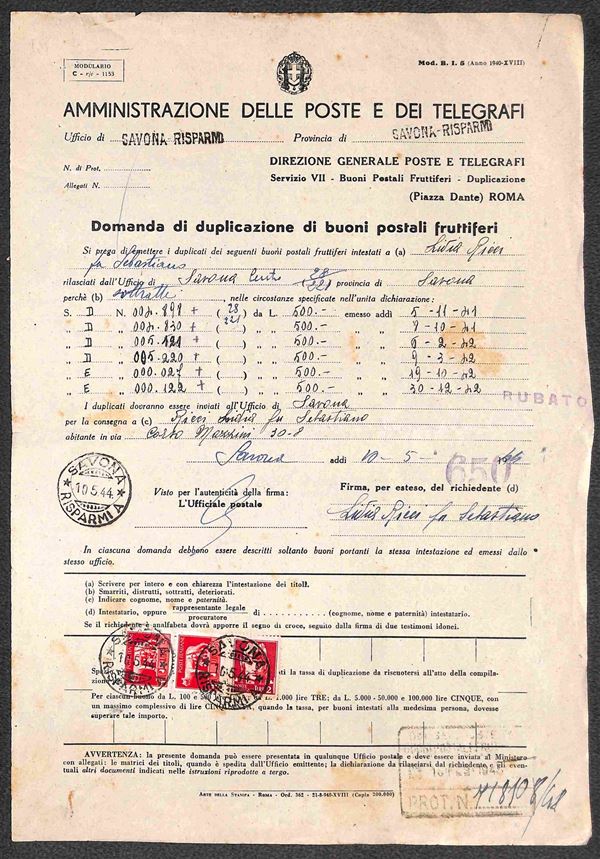 MODULARIO
C - r/r - 1153
Mod. B. I. 5 (Anno 1940-XVIII)
AMMINISTRAZIONE DELLE POSTE E DEI TELEGRAFI
Ufficio di SAVONA-RISPARMI Provincia di SAVONA-RISPARMI
N. di Prot.
Allegati N.
DIREZIONE GENERALE POSTE E TELEGRAFI
Servizio VII - Buoni Postali Fruttiferi - Duplicazione
(Piazza Dante) ROMA
Domanda di duplicazione di buoni postali fruttiferi
Si prega di emettere i duplicati dei seguenti buoni postali fruttiferi intestati a (a) Lidia Ricci
fu Sebastiano
rilasciati dall'Ufficio di Savona Centro 28/221 provincia di Savona
perchè (b) sottratti, nelle circostanze specificate nell'unita dichiarazione:
S. D N. 004.898 + (28/221) da L. 500.- emesso addì 5-11-41
" D " 004.830 + ( ) " " 500.- " " 7-10-41
" D " 005.121 + ( ) " " 500.- " " 6-2-42
" D " 005.220 + ( ) " " 500.- " " 9-3-42
" E " 000.027 + ( ) " " 500.- " " 19-10-42
" E " 000.122 + ( ) " " 500.- " " 30-12-42
RUBATO
I duplicati dovranno essere inviati all'Ufficio di Savona
per la consegna a (c) Ricci Lidia fu Sebastiano
abitante in via Corso Mazzini 30-8
Savona addì 10-5-44
650
SAVONA
10.5.44
RISPARMI A
Visto per l'autenticità della firma:
L'Ufficiale postale
Firma, per esteso, del richiedente (d)
Lidia Ricci fu Sebastiano
In ciascuna domanda debbono essere descritti soltanto buoni portanti la stessa intestazione ed emessi dallo
stesso ufficio.
(a) Scrivere per intero e con chiarezza l'intestazione dei titoli.
(b) Smarriti, distrutti, sottratti, deteriorati.
(c) Indicare cognome, nome e paternità.
(d) Intestatario, oppure rappresentante legale / procuratore di (cognome, nome e paternità) intestatario.
Se il richiedente è analfabeta dovrà apporre il segno di croce, seguito dalla firma di due testimoni idonei.
SAVONA
10.5.44
RISPARMI A
SAVONA
10.5.44
RISPARMI A
i la tassa di duplicazione da riscuotersi all'atto della compila-
zione
Per ciascun buono da L. 100 e L. 1.000 lire TRE; da L. 5.000 - 50.000 e 100.000 lire CINQUE, con
un massimo complessivo di lire quando, la tassa, per buoni intestati alla medesima persona, dovesse
superare tale importo.
AVVERTENZA: la presente domanda può essere presentata in qualunque Ufficio postale e deve essere inviata al Ministero
con allegati: le matrici dei titoli, quando è spedita dall'Ufficio emittente; la dichiarazione da rilasciarsi dal richiedente e gli even-
tuali altri documenti indicati nelle istruzioni riprodotte a tergo.
Arte della Stampa - Roma - Ord. 362 - 21-8-940-XVIII (Copie 200.000)
PROT. N.